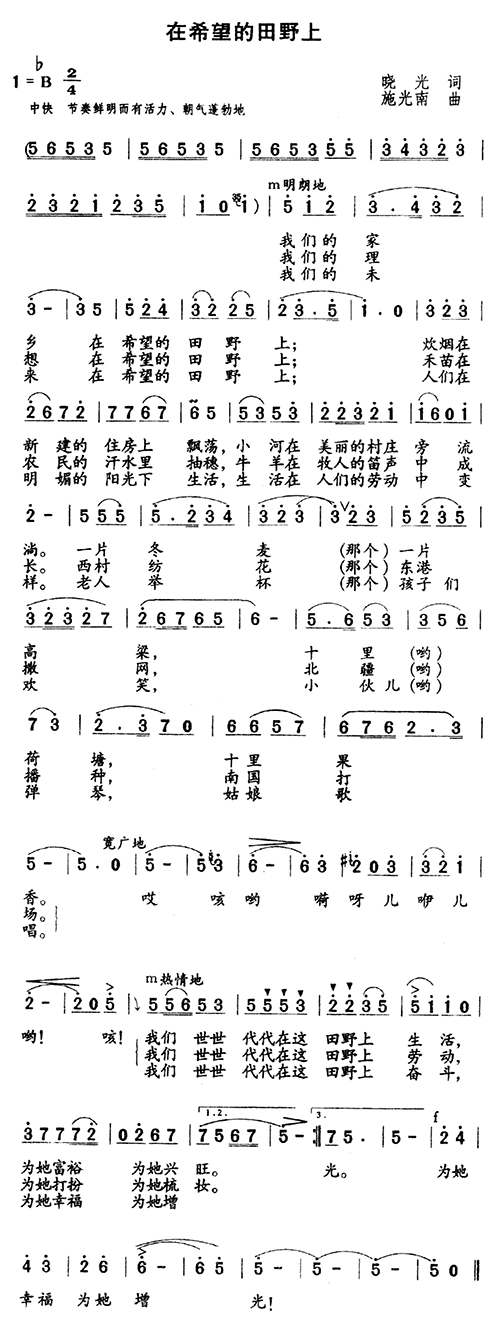 在希望的田野上
1=♭B 2/4
晓光 词
中快 节奏鲜明而有活力、朝气蓬勃地
施光南 曲
(56535 | 56535 | 565355 | 343323 |
m明朗地
2321235 | 10 ) | 512 | 3.432 |
我们的 家
我们的 理
我们的 未
3- | 35 | 524 | 3225 | 23.5 | 1.0 | 323 |
乡 在 希望的 田 野 上; 炊烟在
想 在 希望的 田 野 上; 禾苗在
来 在 希望的 田 野 上; 人们在
2672 | 7767 | 65 | 5353 | 22321 | 1601 |
新 建的 住房上 飘荡,小 河在 美丽的村庄 旁 流
农 民的 汗水里 抽穗,牛 羊在 牧人的笛声 中 成
明 媚的 阳光下 生活,生 活在 人们的劳动 中 变
2- | 555 | 5.234 | 323 | 323 | 5235 |
淌。 一片 冬 麦 (那个) 一片
长。 西村 纺 花 (那个) 东港
样。 老人 举 杯 (那个) 孩子 们
32327 | 26765 | 6- | 5.653 | 356 |
高 粱, 十 里 (哟)
撒 网, 北 疆 (哟)
欢 笑, 小 伙儿 (哟)
73 | 2.370 | 6657 | 6762.3 |
荷 塘, 十里 果
播 种, 南国 打
弹 琴, 姑娘 歌
宽广地
5- | 5.0 | 5- | 53 | 6- | 63 | 203 | 321 |
香。 哎 咳 哟 嗬 呀 儿 咿 儿
场。
唱。
m热情地
2- | 205 | 55653 | 5553 | 2235 | 5110 |
哟! 咳! 我们 世世 代代在这 田野上 生 活,
我们 世世 代代在这 田野上 劳 动,
我们 世世 代代在这 田野上 奋 斗,
1.2. 3. f
37772 | 0267 | 7567 | 5- :‖ 75. | 5- | 24 |
为她富裕 为她兴 旺。 光。 为她
为她打扮 为她梳 妆。
为她幸福 为她增
43 | 26 | 6- | 65 | 5- | 5- | 5- | 50 ‖
幸福 为她 增 光!